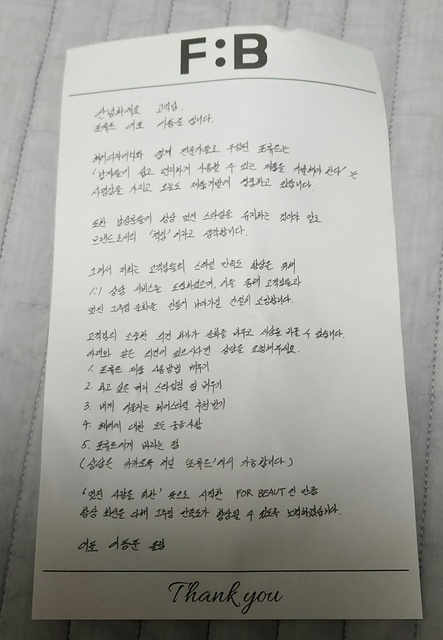 F:B
안녕하세요 고객님.
포뷰트 대표 이동준 입니다.
헤어디자이너와 업계 전문가들로 구성된 포뷰트는
'남자들이 쉽고 편리하게 사용할 수 있는 제품을 개발해야 한다' 는
사명감을 가지고 오늘도 제품개발에 열중하고 있습니다.
또한 남성분들이 항상 멋진 스타일을 유지하는 것이야 말로
브랜드로서의 '책임' 이라고 생각합니다.
그래서 저희는 고객님들의 스타일 만족도 향상을 위해
1:1 상담 서비스를 도입하였으며, 이를 통해 고객님들과
멋진 그루밍 문화를 만들어 나아가길 간절히 소망합니다.
고객님의 소중한 의견 하나가 문화를 바꾸고 세상을 바꿀 수 있습니다.
아래와 같은 의견이 있으시다면 상담을 요청해주세요.
1. 포뷰트 제품 사용방법 배우기
2. 하고 싶은 머리 스타일링 법 배우기
3. 내게 어울리는 헤어스타일 추천 받기
4. 헤어에 대한 모든 궁금사항
5. 포뷰트에게 바라는 점
(상담은 카카오톡 채널 '포뷰트' 에서 가능합니다.)
'멋진 사람을 위한' 뜻으로 시작한 FOR BEAUT 인 만큼
항상 최선을 다해 그루밍 만족도가 향상될 수 있도록 노력하겠습니다.
대표 이동준 올림
Thank you